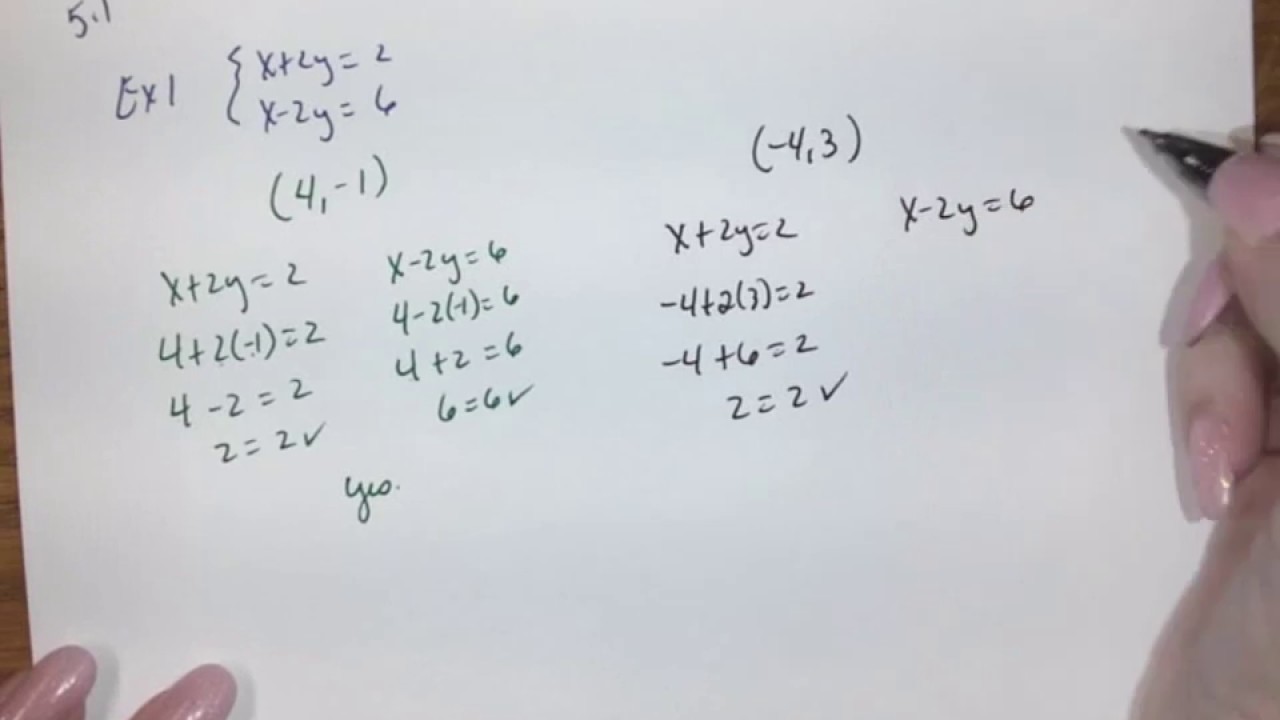 5.1
Ex 1 { x+2y = 2
x-2y = 6
(4,-1)
x+2y = 2
4+2(-1)=2
4 -2 = 2
2 = 2✓
x-2y = 6
4-2(-1)= 6
4 +2 = 6
6=6✓
yes.
(-4,3)
x+2y=2
-4+2(3)=2
-4 +6 = 2
2 = 2 ✓
x-2y = 6